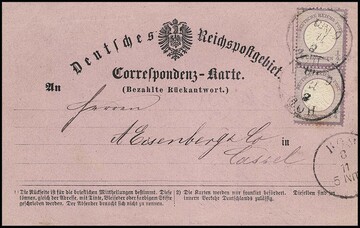 Deutsches Reichspostgebiet.
Correspondenz-Karte.
(Bezahlte Rückantwort.)
An
Herren
A Eisenberg & Co
in
Cassel
1) Die Rückseite ist für die brieflichen Mittheilungen bestimmt. Diese
können, gleich der Adresse, mit Tinte, Bleifeder oder farbigem Stifte
geschrieben werden. Der Absender braucht sich nicht zu nennen.
2) Die Karten werden nur frankirt befördert.
innern Verkehr Deutschlands zulässig.
8
11
5